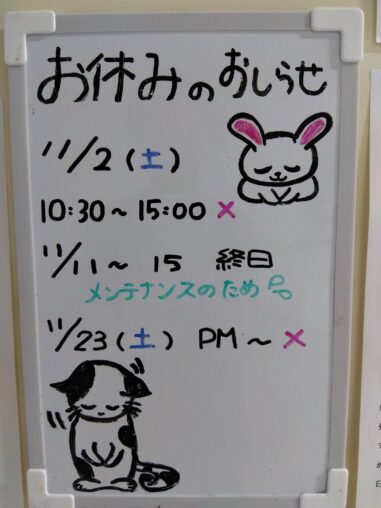 お休みのおしらせ
11/2(土)
10:30~15:00 ×
11/11~15 終日
メンテナンスのため
11/23(土) PM~×